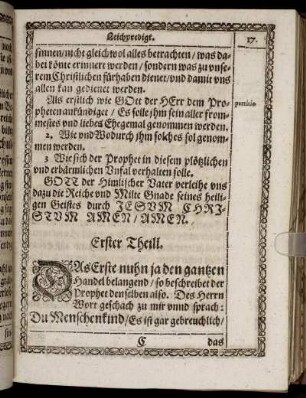 Leichpredigt.
17.
sinnen/nicht gleichwol alles betrachten/was da-
bei könte erinnert werden/sondern was zu unse-
rem Christlichen fürhaben dienet/und damit uns
allen kan gedienet werden.
Als erstlich wie GOtt der HErr dem Pro-
pheten ankündiget/Es solle ihm sein aller from-
mestes und liebes Ehegemal genommen werden.
2. Wie und Wodurch ihm solches sol genom-
men werden.
3 Wie sich der Prophet in diesem plötzlichen
und erbärmlichen Unfal verhalten solle.
GOTT der Himlischer Vater verleihe uns
dazu die Reiche und Milte Gnade seines heili-
gen Geistes durch JESVM CHRI-
STVM AMEN/AMEN.
Erster Theill.
DAs Erste nuhn ja den gantzen
Handel belangend/so beschreibet der
Prophet denselben also. Des Herrn
Wort geschach zu mir vnnd sprach:
Du Menschenkind/Es ist gar gebreuchlich/
C das